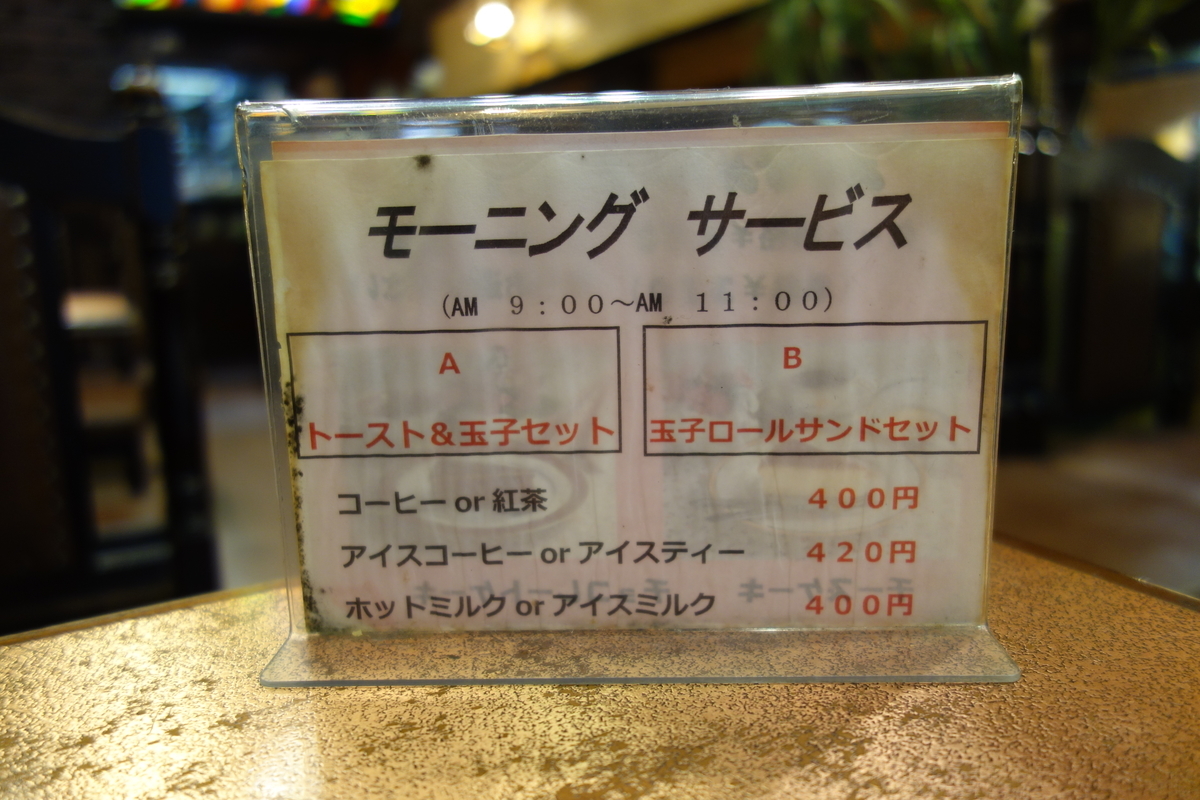 モーニング サービス
(AM 9:00～AM 11:00)
A
トースト&玉子セット
B
玉子ロールサンドセット
コーヒー or 紅茶 400円
アイスコーヒー or アイスティー 420円
ホットミルク or アイスミルク 400円